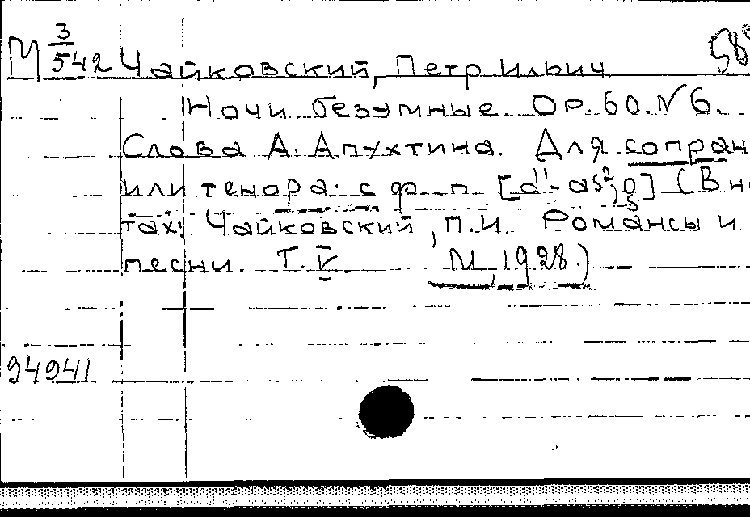 М 3/542 Чайковский, Петр Ильич 58
Ночи безумные. Ор. 60. № 6.
Слова А. Апухтина. Для сопран
или тенора с ф.-п. [d¹-as²] (В н
тах: Чайковский, П.И. Романсы и
песни. Т. V. М., 1928.)
94941